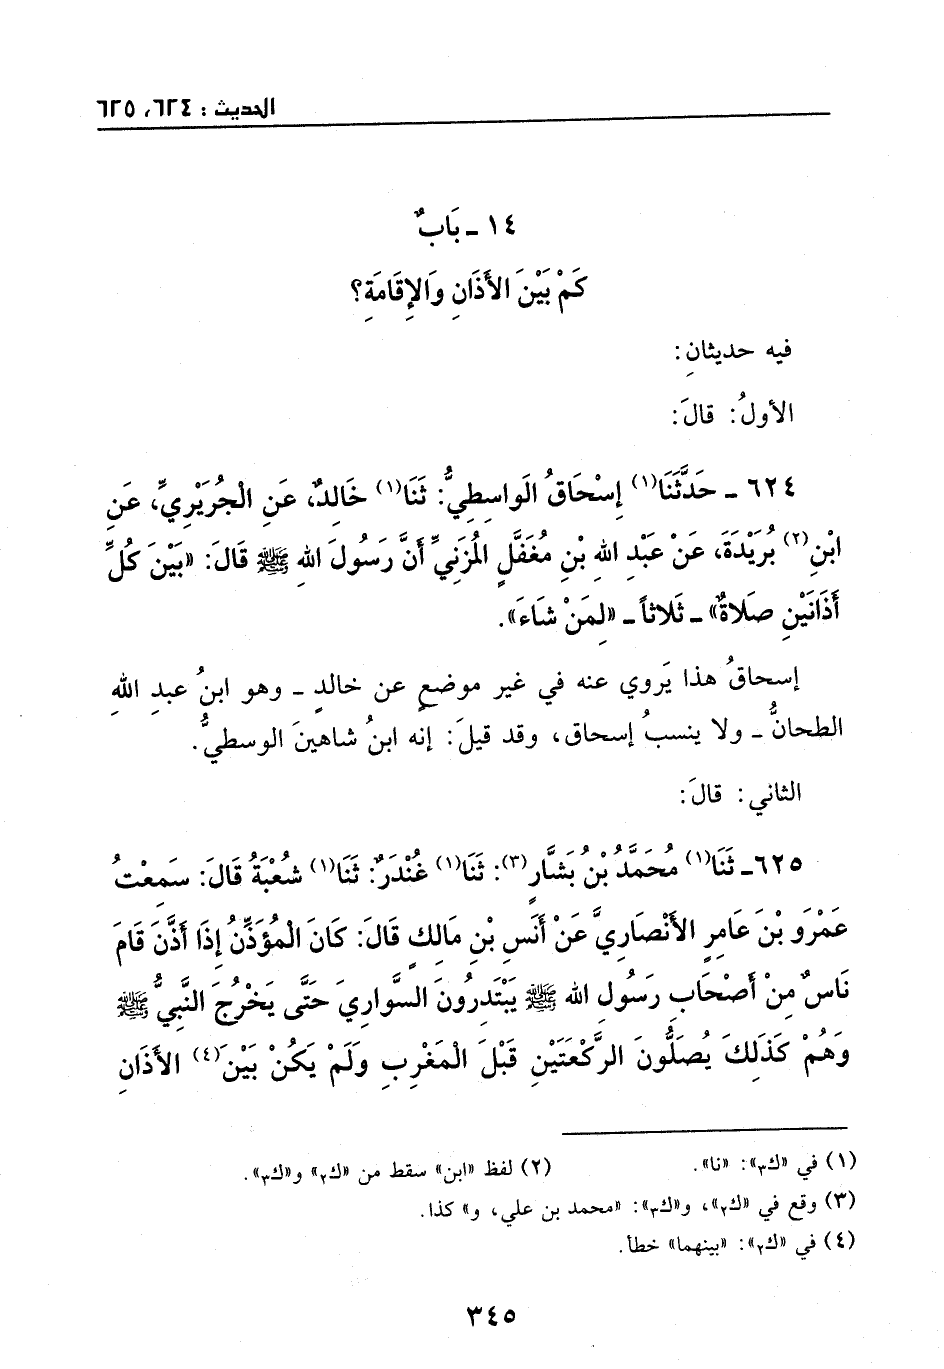 الحديث : ٦٢٤، ٦٢٥
١٤ ـ بَابٌ
كَمْ بَيْنَ الأَذَانِ وَالإِقَامَةِ؟
فيه حديثانِ:
الأولُ: قالَ:
٦٢٤ ـ حَدَّثَنَا(١) إِسْحَاقُ الوَاسِطِيُّ: ثَنَا(١) خَالِدٌ، عَنِ الْجُرَيْرِيِّ، عَنِ
ابْنِ(٢) بُرَيْدَةَ، عَنْ عَبْدِ اللهِ بْنِ مُغَفَّلٍ الْمُزَنِيِّ أَنَّ رَسُولَ اللهِ ﷺ قَالَ: «بَيْنَ كُلِّ
أَذَانَيْنِ صَلَاةٌ» ـ ثَلاثاً ـ «لِمَنْ شَاءَ».
إسحاقُ هذا يَروي عنه في غير موضعٍ عن خالدٍ ـ وهو ابنُ عبدِ اللهِ
الطحانُّ ـ ولا ينسبُ إسحاق، وقد قيلَ: إنه ابنُ شاهينَ الوسطيُّ.
الثاني: قالَ:
٦٢٥ـ ثَنَا(١) مُحَمَّدُ بْنُ بَشَّارٍ(٣): ثَنَا(١) غُنْدَرٌ: ثَنَا(١) شُعْبَةُ قَالَ: سَمِعْتُ
عَمْرَو بْنَ عَامِرٍ الأَنْصَارِيَّ عَنْ أَنَسِ بْنِ مَالِكٍ قَالَ: كَانَ الْمُؤَذِّنُ إِذَا أَذَّنَ قَامَ
نَاسٌ مِنْ أَصْحَابِ رَسُولِ الله ﷺ يَبْتَدِرُونَ السَّوارِيَ حَتَّى يَخْرُجَ النَّبِيُّ ﷺ
وَهُمْ كَذَلِكَ يُصَلُّونَ الرَّكْعَتَيْنِ قَبْلَ الْمَغْرِبِ وَلَمْ يَكُنْ بَيْنَ(٤) الأَذَانِ
(١) في «ك٣»: «نا». (٢) لفظ «ابن» سقط من «ك٢» و«ك٣».
(٣) وقع في «ك٢»، و«ك٣»: «محمد بن علي، و» كذا.
(٤) في «ك٢»: «بينهما» خطأ.
٣٤٥